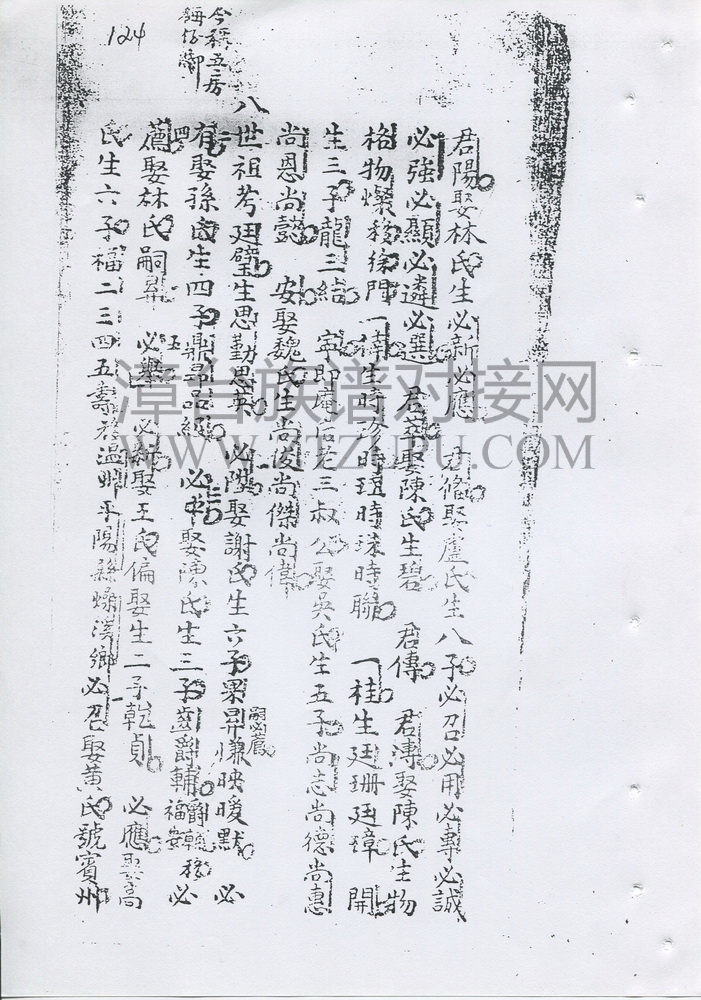 君陽娶林氏生必新必應 君脩娶盧氏生八子必召必用必專必誠
必強必顯必遴必選 君 娶陳氏生碧 君傳 君溥娶陳氏生物
格物燦移徐門 一偉生時 時 時 時聯 一桂生廷珊廷璋 開
生三子龍三結 寧即庵后老三叔公娶吳氏生五子尚志尚德尚惠
尚恩尚懿 安娶魏氏生尚俊尚傑尚偉
八世祖考廷璧生思勤思英 必陞娶謝氏生六子果昇慊映暖默 必
嗣必薦
有娶孫氏生四子鼎昂品 必中娶陳氏生三子齒爵輔 必
薦娶林氏嗣昇 必舉 必 娶王氏偏娶生二子乾貞 必應娶高
氏生六子福二三四五壽 溫州平陽縣 溪鄉必召娶黃氏號賓州
今稱五房
124
漳台族谱对接网
WWW.ZTZUPU.COM